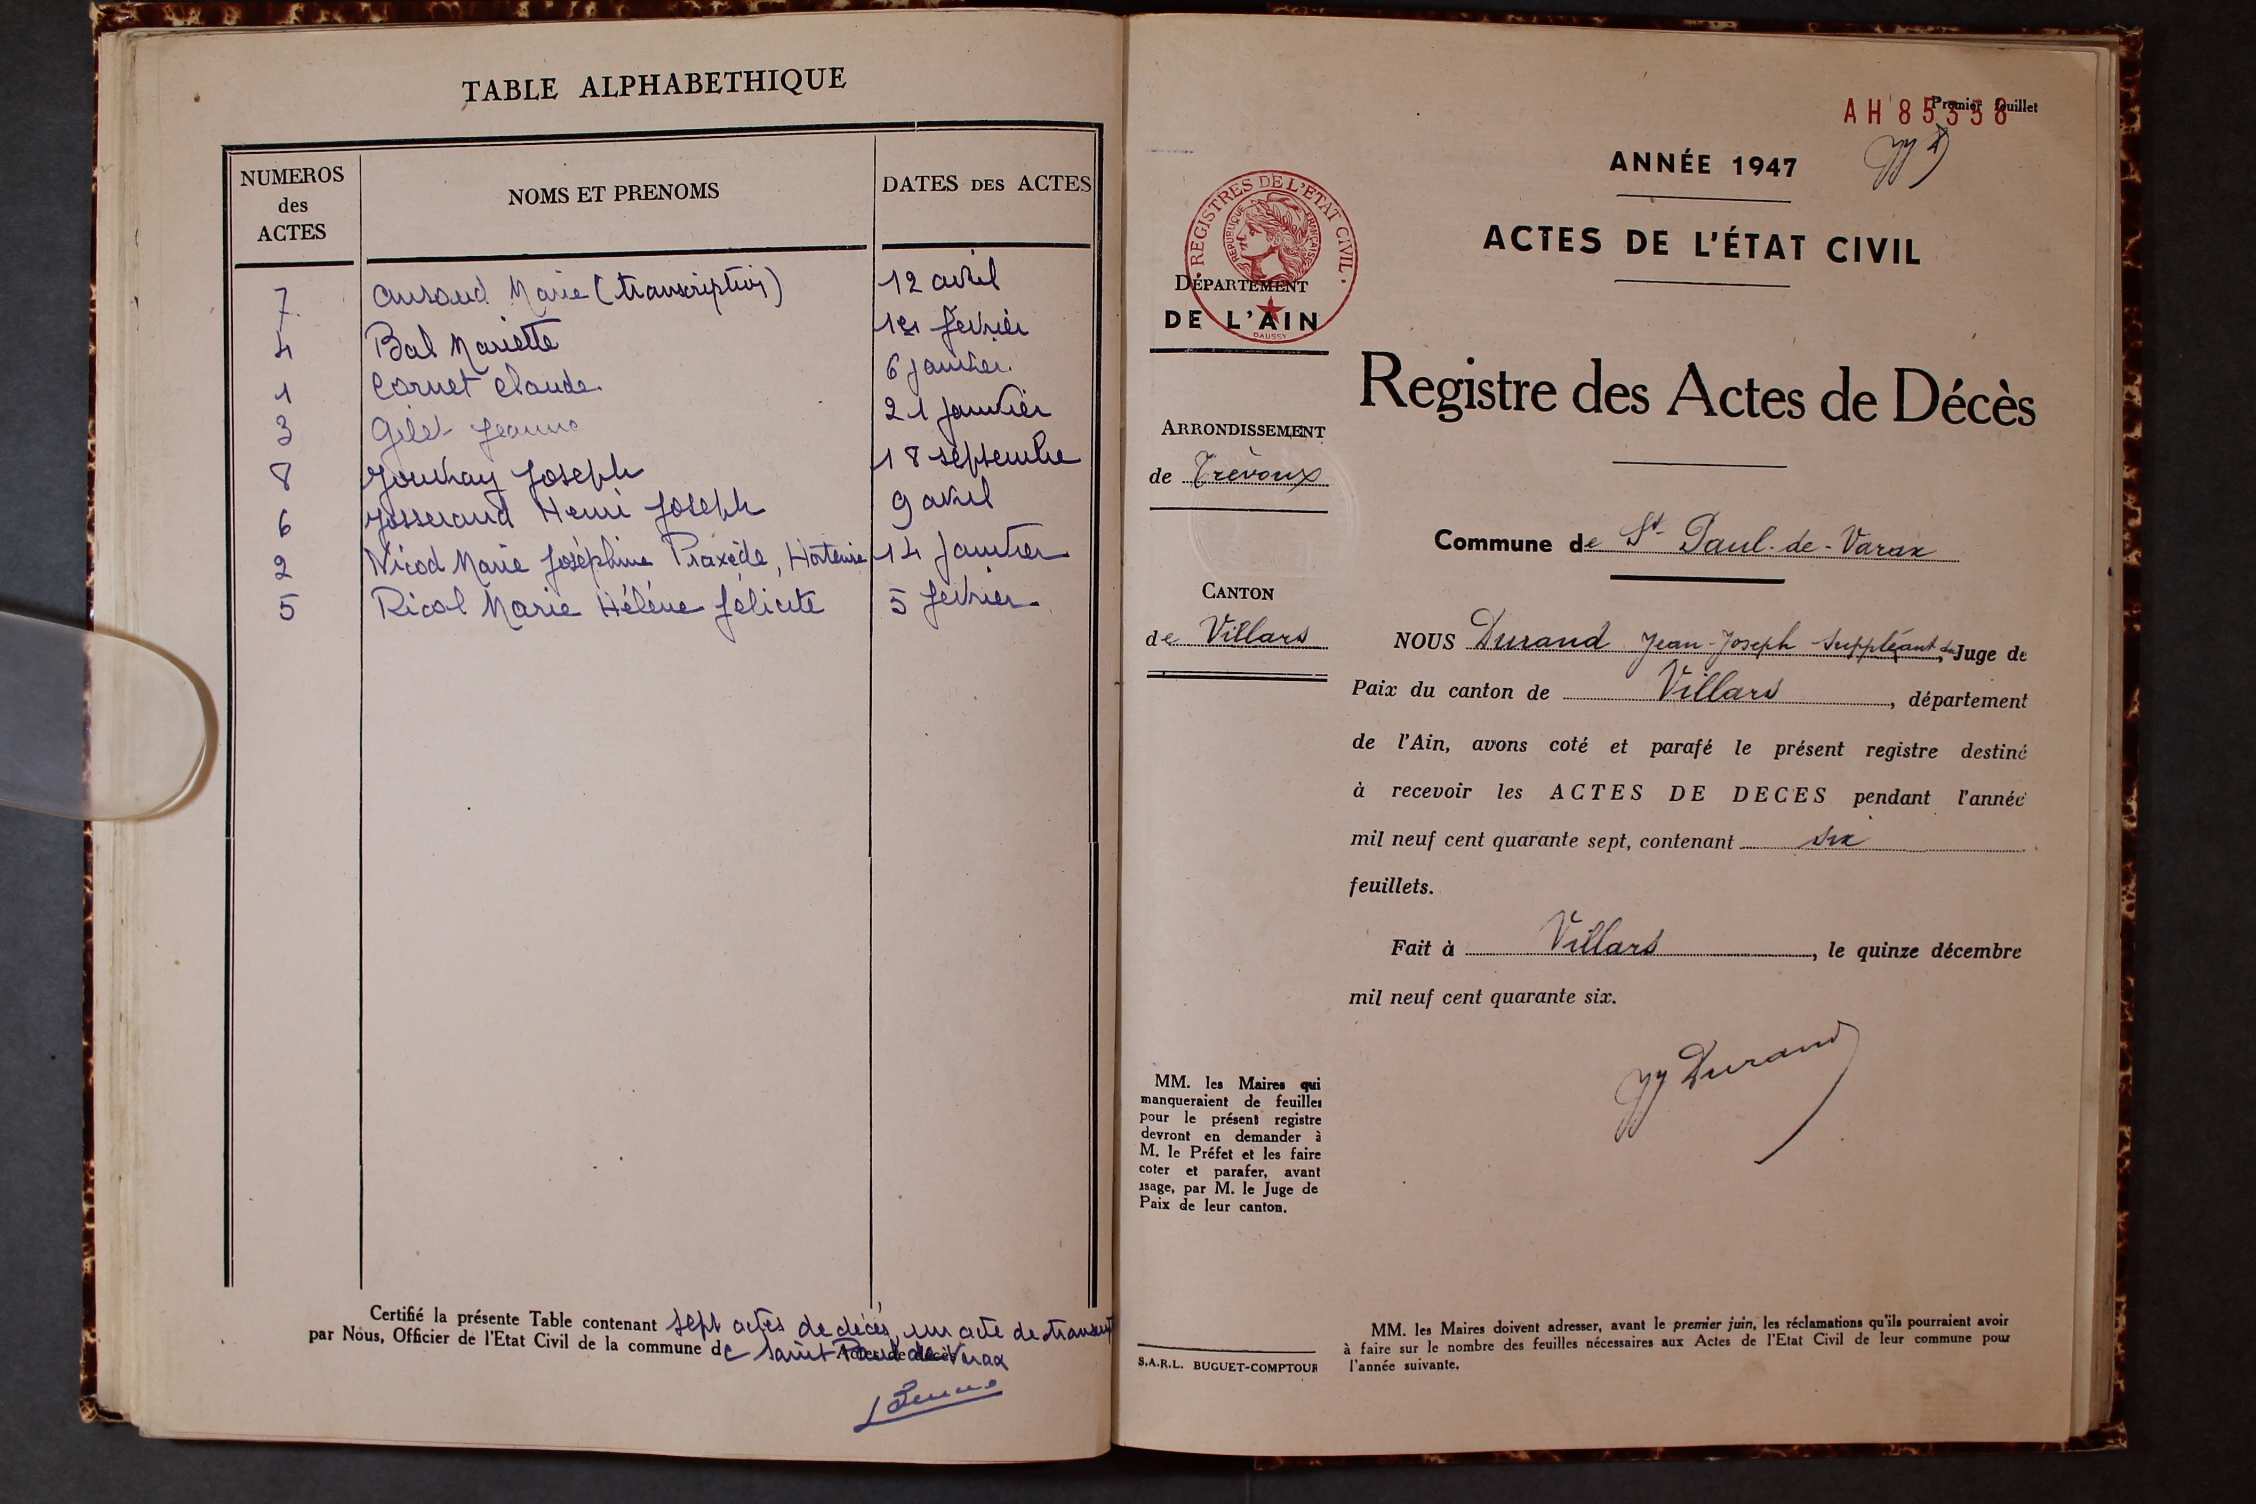 TABLE ALPHABETHIQUE
NUMEROS des ACTES
NOMS ET PRENOMS
DATES DES ACTES
7 Marie (transcription) 12 avril
4 Bal Mariette 1er février
1 Cornet Claude 6 janvier
3 Gilet Jeanne 21 janvier
8 Joseph 18 septembre
6 Josserand Henri Joseph 9 avril
2 Nicod Marie Joséphine Praxède, Hortense 14 janvier
5 Ricol Marie Hélène félicité 5 février
Certifié la présente Table contenant sept actes de décès, un acte de transcript
par Nous, Officier de l'Etat Civil de la commune de Saint Paul de Varax
Actes de décès
AH 85358
Premier feuillet
ANNÉE 1947
ACTES DE L'ÉTAT CIVIL
REGISTRES DE L'ETAT CIVIL
REPUBLIQUE FRANÇAISE
DAUSSY
DÉPARTEMENT
DE L'AIN
Registre des Actes de Décès
ARRONDISSEMENT
de Trévoux
Commune de St Paul-de-Varax
CANTON
de Villars
NOUS Durand Jean-Joseph suppléant du Juge de
Paix du canton de Villars, département
de l'Ain, avons coté et parafé le présent registre destiné
à recevoir les ACTES DE DECES pendant l'année
mil neuf cent quarante sept, contenant six
feuillets.
Fait à Villars, le quinze décembre
mil neuf cent quarante six.
JJ Durand
MM. les Maires qui
manqueraient de feuilles
pour le présent registre
devront en demander à
M. le Préfet et les faire
coter et parafer, avant
usage, par M. le Juge de
Paix de leur canton.
S.A.R.L. BUGUET-COMPTOUR
MM. les Maires doivent adresser, avant le premier juin, les réclamations qu'ils pourraient avoir
à faire sur le nombre des feuilles nécessaires aux Actes de l'Etat Civil de leur commune pour
l'année suivante.